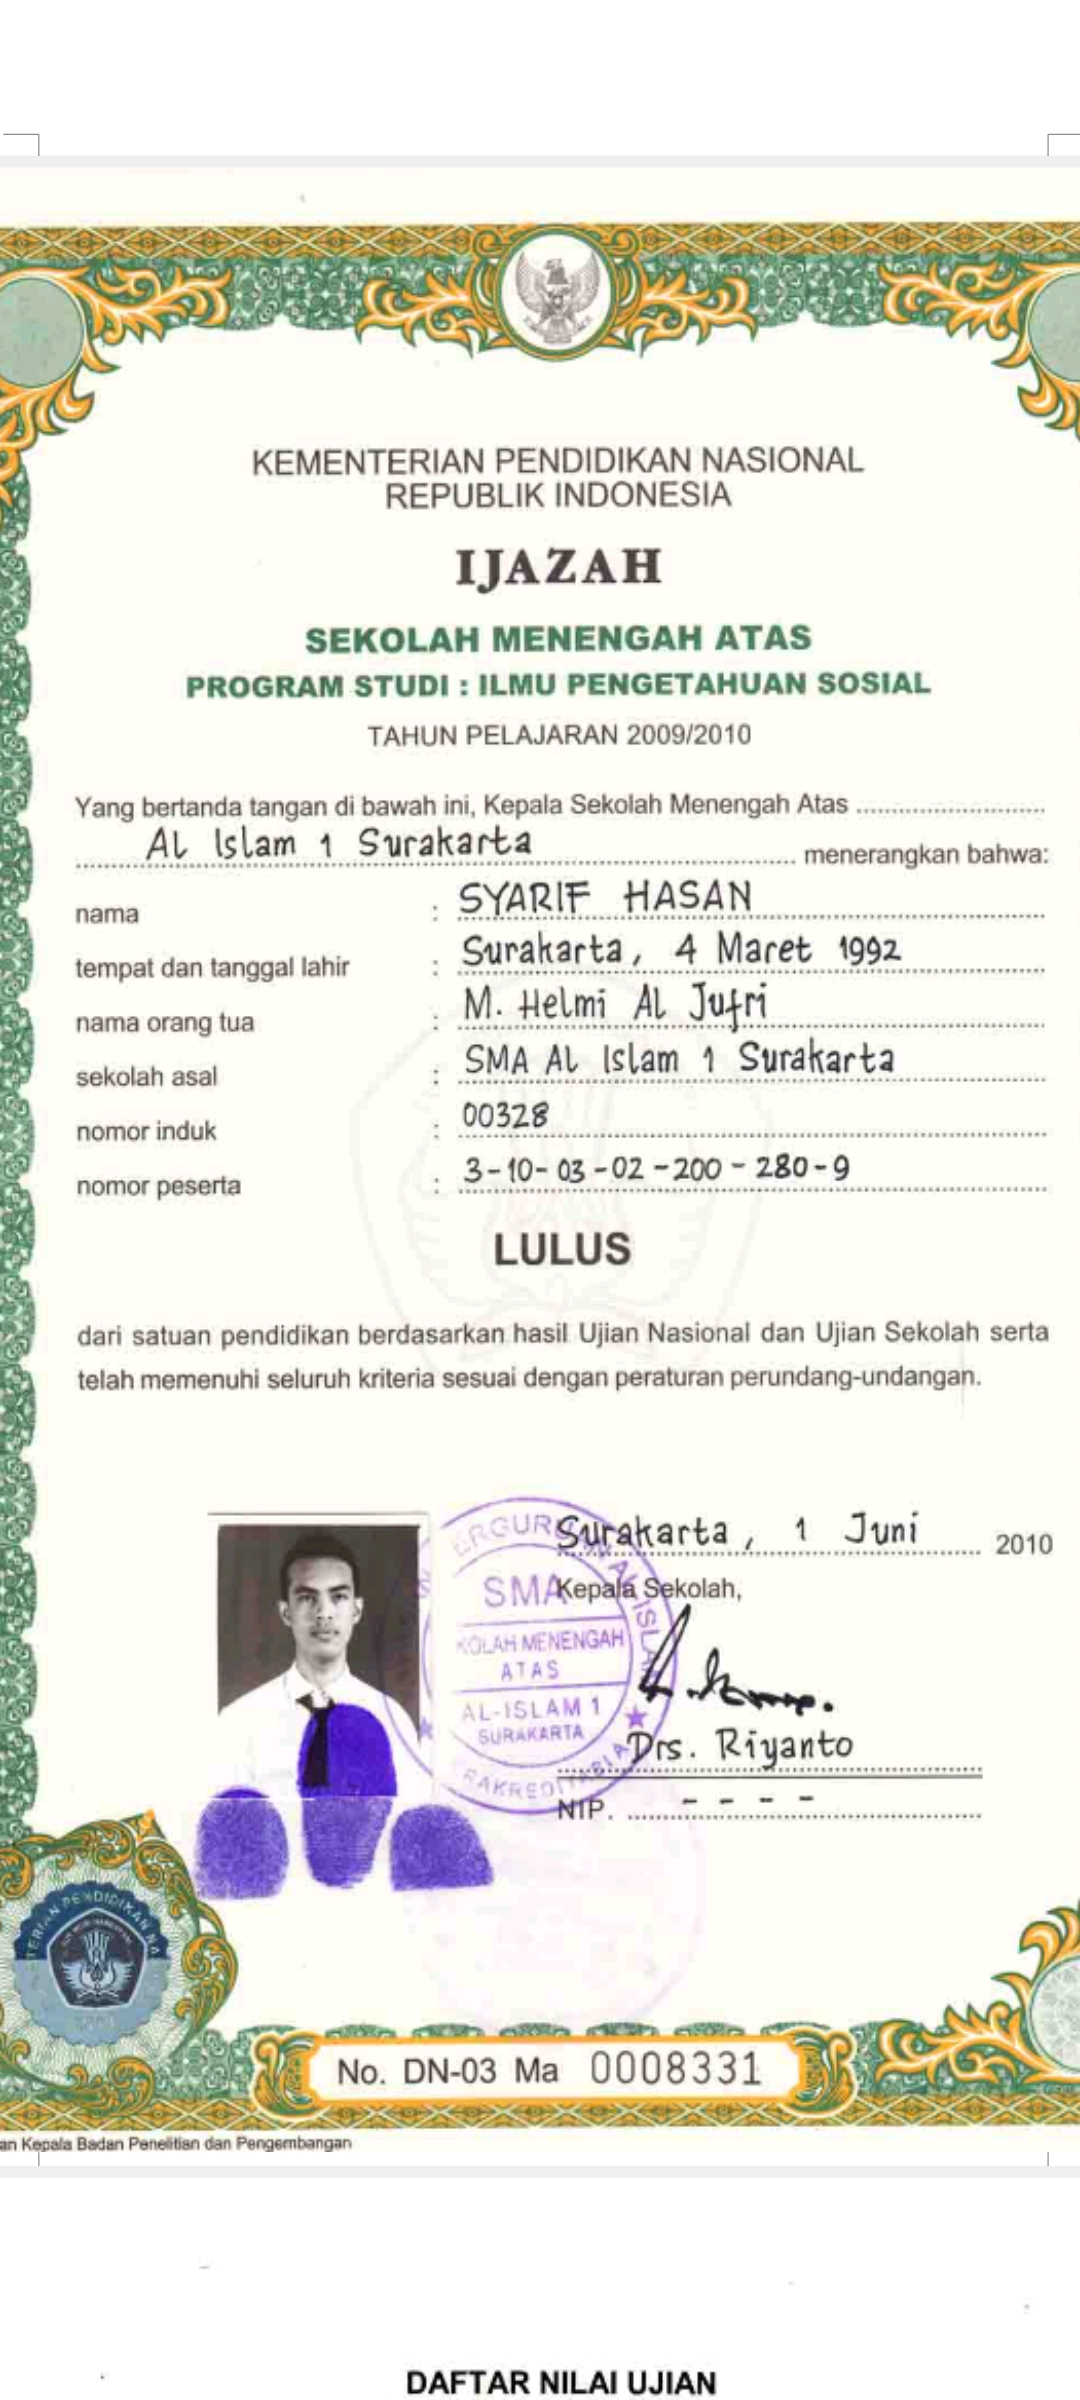 KEMENTERIAN PENDIDIKAN NASIONAL
REPUBLIK INDONESIA
IJAZAH
SEKOLAH MENENGAH ATAS
PROGRAM STUDI : ILMU PENGETAHUAN SOSIAL
TAHUN PELAJARAN 2009/2010
Yang bertanda tangan di bawah ini, Kepala Sekolah Menengah Atas
Al Islam 1 Surakarta menerangkan bahwa:
nama : SYARIF HASAN
tempat dan tanggal lahir : Surakarta, 4 Maret 1992
nama orang tua : M. Helmi Al Jufri
sekolah asal : SMA Al Islam 1 Surakarta
nomor induk : 00328
nomor peserta : 3-10-03-02-200-280-9
LULUS
dari satuan pendidikan berdasarkan hasil Ujian Nasional dan Ujian Sekolah serta
telah memenuhi seluruh kriteria sesuai dengan peraturan perundang-undangan.
Surakarta, 1 Juni 2010
Kepala Sekolah,
SMA
KOLAH MENENGAH
ATAS
AL-ISLAM 1
SURAKARTA
AL-ISLAM
Drs. Riyanto
NIP. - - - -
No. DN-03 Ma 0008331
an Kepala Badan Penelitian dan Pengembangan
DAFTAR NILAI UJIAN